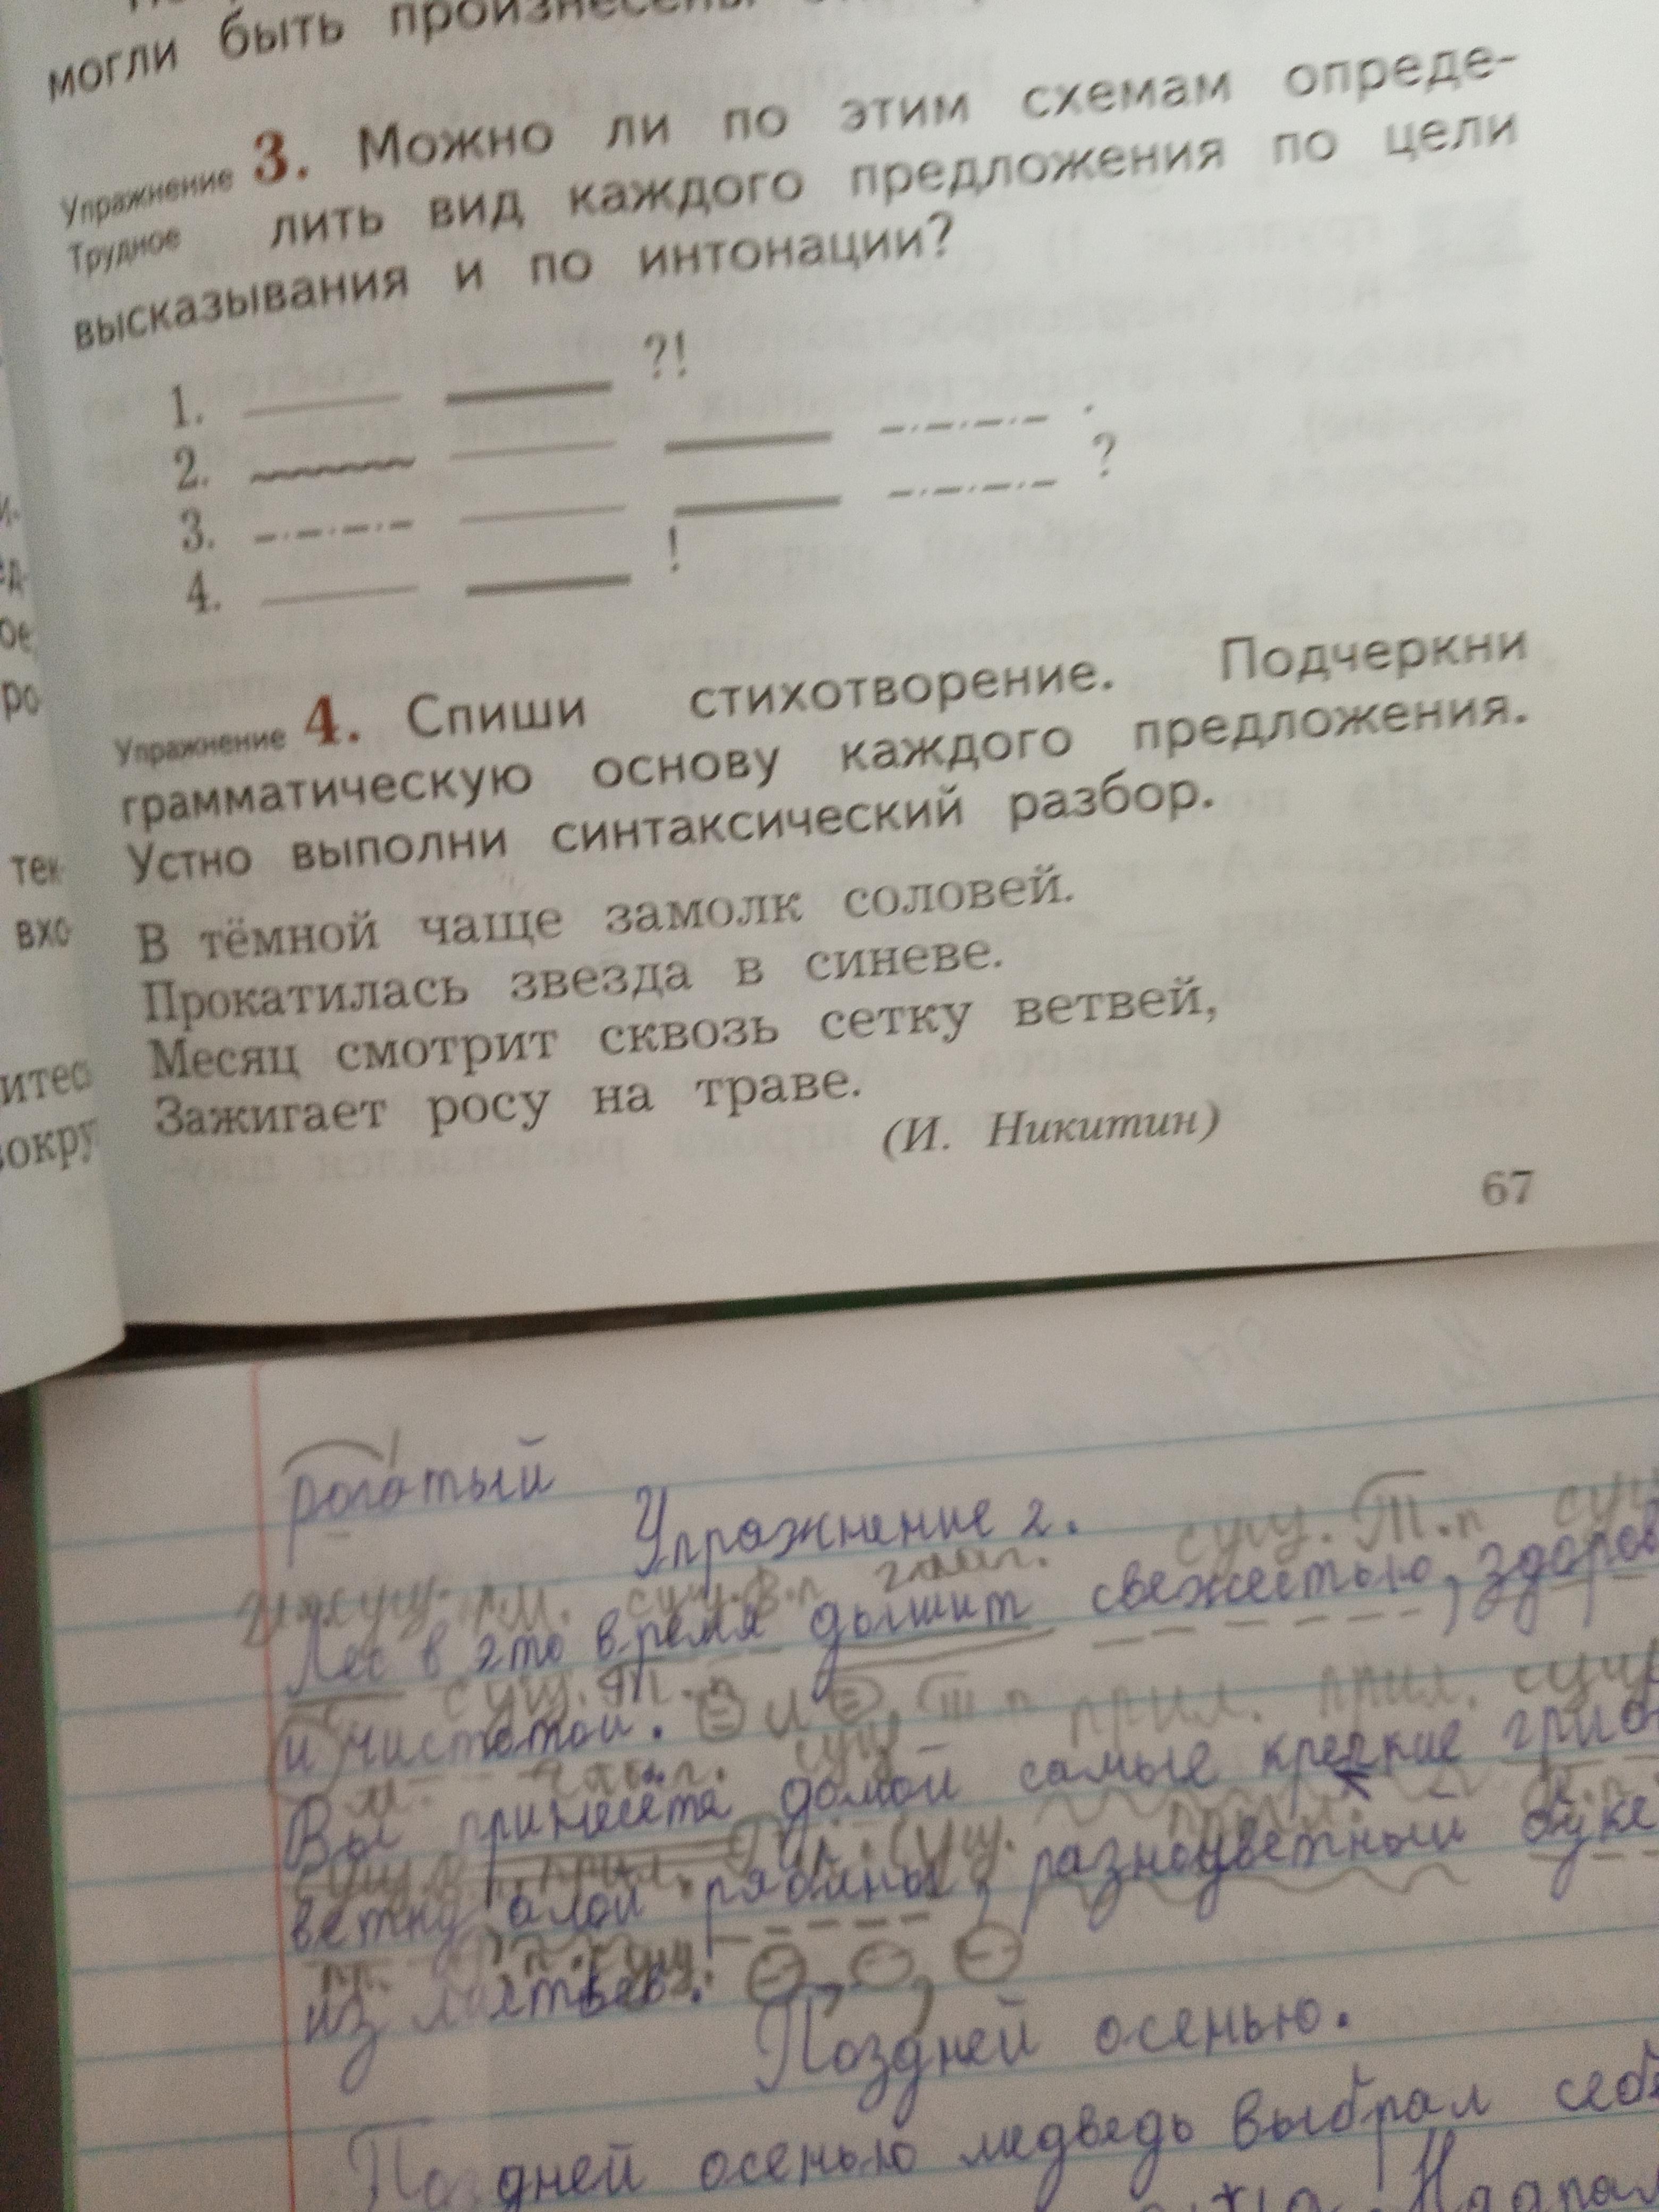 могли быть произнесены
Упражнение 3. Можно ли по этим схемам опреде-
Трудное лить вид каждого предложения по цели
высказывания и по интонации?
1. ?!
2. .
3. ?
4. !
Упражнение 4. Спиши стихотворение. Подчеркни
грамматическую основу каждого предложения.
Устно выполни синтаксический разбор.
В тёмной чаще замолк соловей.
Прокатилась звезда в синеве.
Месяц смотрит сквозь сетку ветвей,
Зажигает росу на траве.
(И. Никитин)
67
тек
вхо
итес
вокру
рогатый
Упражнение 2.
глаг. сущ. Т.п сущ
Лес в это время дышит свежестью, здоров
сущ. Т.п
и чистотой.
прил. прил. сущ
Вы принесёте домой самые крепкие гриб
ветку алой рябины, разноцветный буке
из листьев.
Поздней осенью.
Поздней осенью медведь выбрал себе